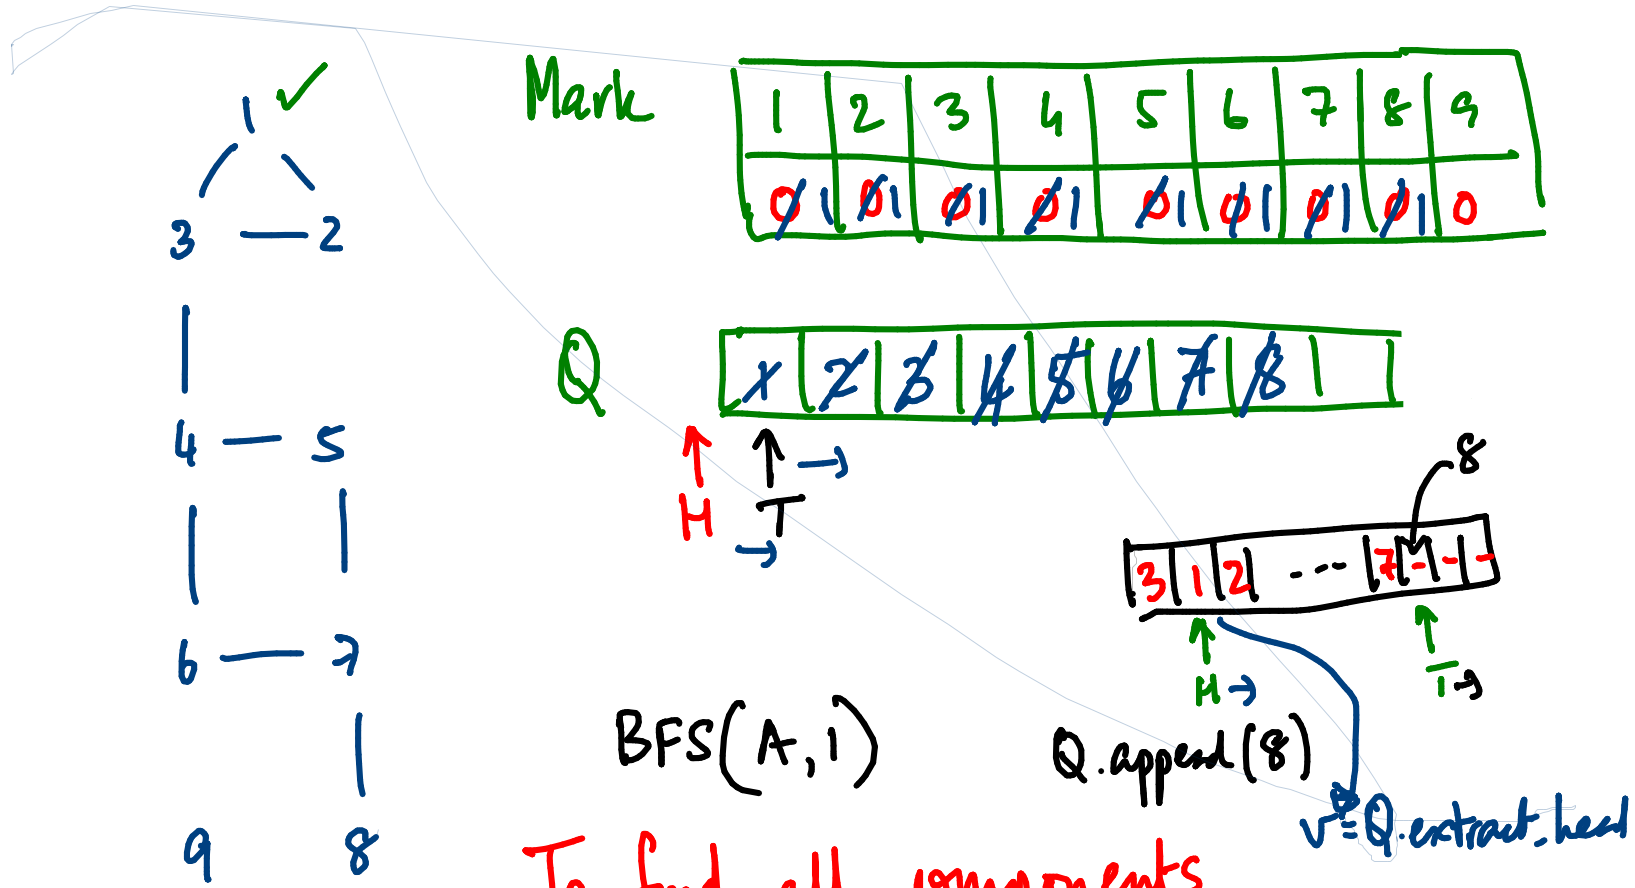 1 ✓
3 — 2
4 — 5
6 — 7
9 8
Mark 1 2 3 4 5 6 7 8 9
0 1 0 1 0 1 0 1 0 1 0 1 0 1 0 1 0
Q 1 2 3 4 5 6 7 8
H T
8
3 1 2 ... 7 - - -
H T
BFS(A,1)
Q.append(8)
v = Q.extract_head
To find all components